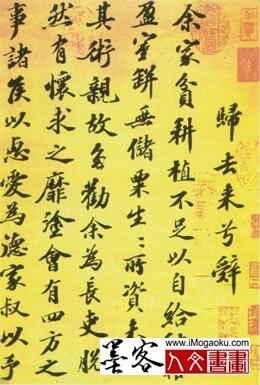 歸去来兮辭
余家貧耕植不足以自給
盈室缾無儲粟生〻所資未
其術親故多勸余為長吏脫
然有懷求之靡塗會有四方之
事諸侯以惠愛為德家叔以予
www.iMogaoku.com
墨客 人文書畫